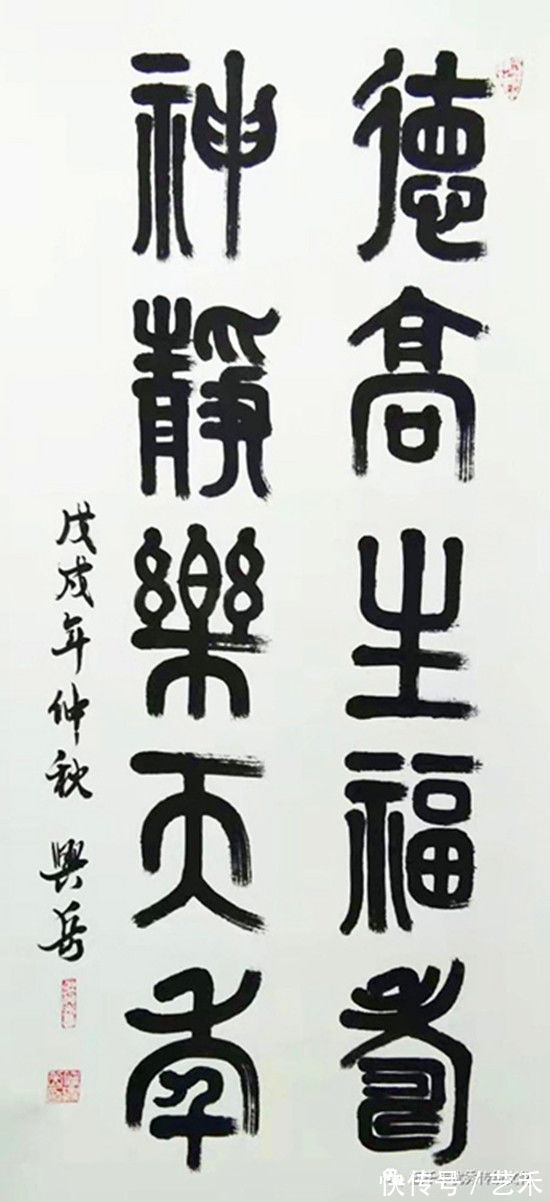 德高生福壽
神靜樂天年
戊戌年仲秋 興岳
快传号/艺禾